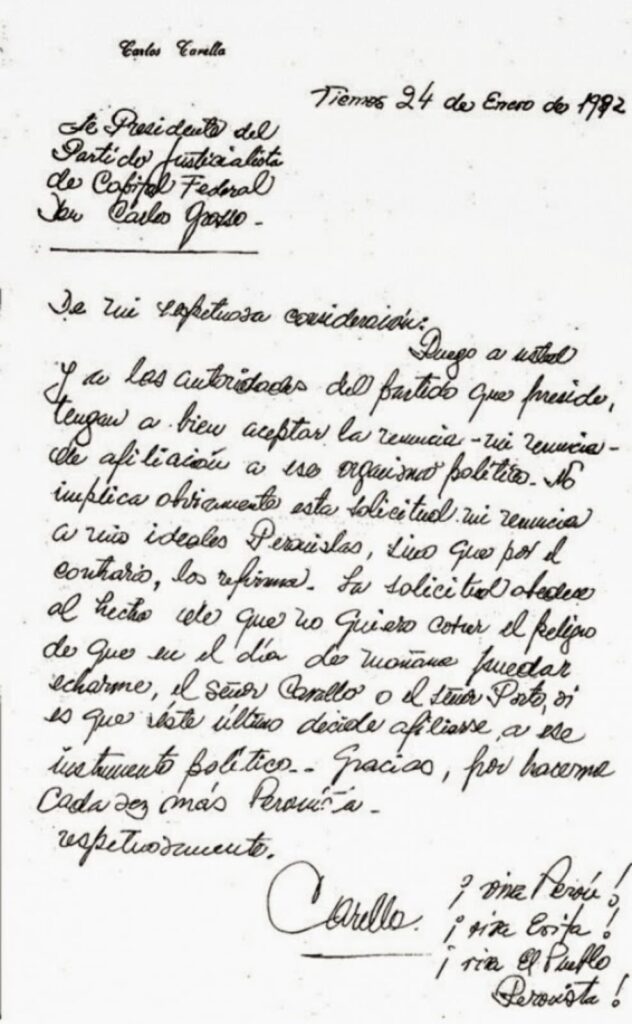 Carlos Carella
24 de Enero de 1992
Presidente del
Partido Justicialista
de Capital Federal
Carlos Grosso -
De mi respetuosa consideración:
Ruego a usted
y a las autoridades del partido que preside,
tengan a bien aceptar la renuncia - mi renuncia -
de afiliación a ese organismo político. No
implica obviamente esta solicitud mi renuncia
a mis ideales Peronistas, sino que por el
contrario, los refirma. La solicitud obedece
al hecho de que no quiero correr el peligro
de que en el día de mañana puedan
echarme, el señor Cavallo o el señor Porto, si
es que éste último decide afiliarse a ese
instrumento político.. Gracias, por hacerme
cada vez más Peronista -
respetuosamente.
Carella.
¡ viva Perón !
¡ viva Evita !
¡ viva El Pueblo
Peronista !